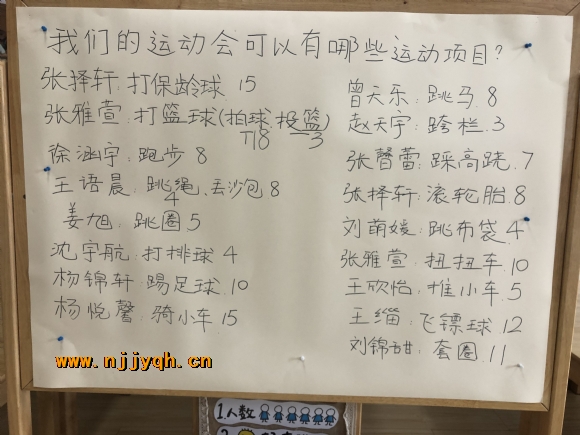 我们的运动会可以有哪些运动项目?
张择轩:打保龄球.15
张雅萱:打篮球(拍球.投篮)
18 3
徐涵宇:跑步 8
王语晨:跳绳、丢沙包 8
4
姜旭.跳圈 5
沈宇航:打排球 4
杨锦轩 踢足球.10
杨悦馨.骑小车 15
曾天乐:跳马.8
赵天宇:跨栏.3
张馨蕾:踩高跷.7
张择轩:滚轮胎.8
刘萌媛:跳布袋 4
张雅萱.扭扭车.10
王欣怡.推小车.5
王缁:飞镖球.12
刘锦甜.套圈.11
www.njjyqh.cn
1人数